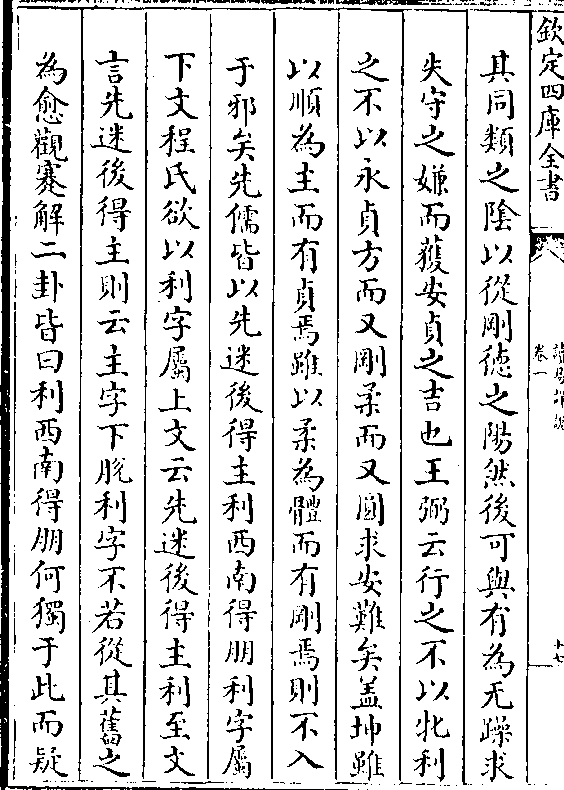 欽定四庫全書
卷一
十七
其同類之陰以從剛德之陽然後可與有為无躁求
失守之嫌而獲安貞之吉也王弼云行之不以牝利
之不以永貞方而又剛柔而又圓求安難矣蓋坤雖
以順為主而有貞焉雖以柔為體而有剛焉則不入
于邪矣先儒皆以先迷後得主利西南得朋利字屬
下文程氏欲以利字屬上文云先迷後得主利至文
言先迷後得主則云主字下脫利字不若從其舊之
為愈觀蹇解二卦皆曰利西南得朋何獨于此而疑